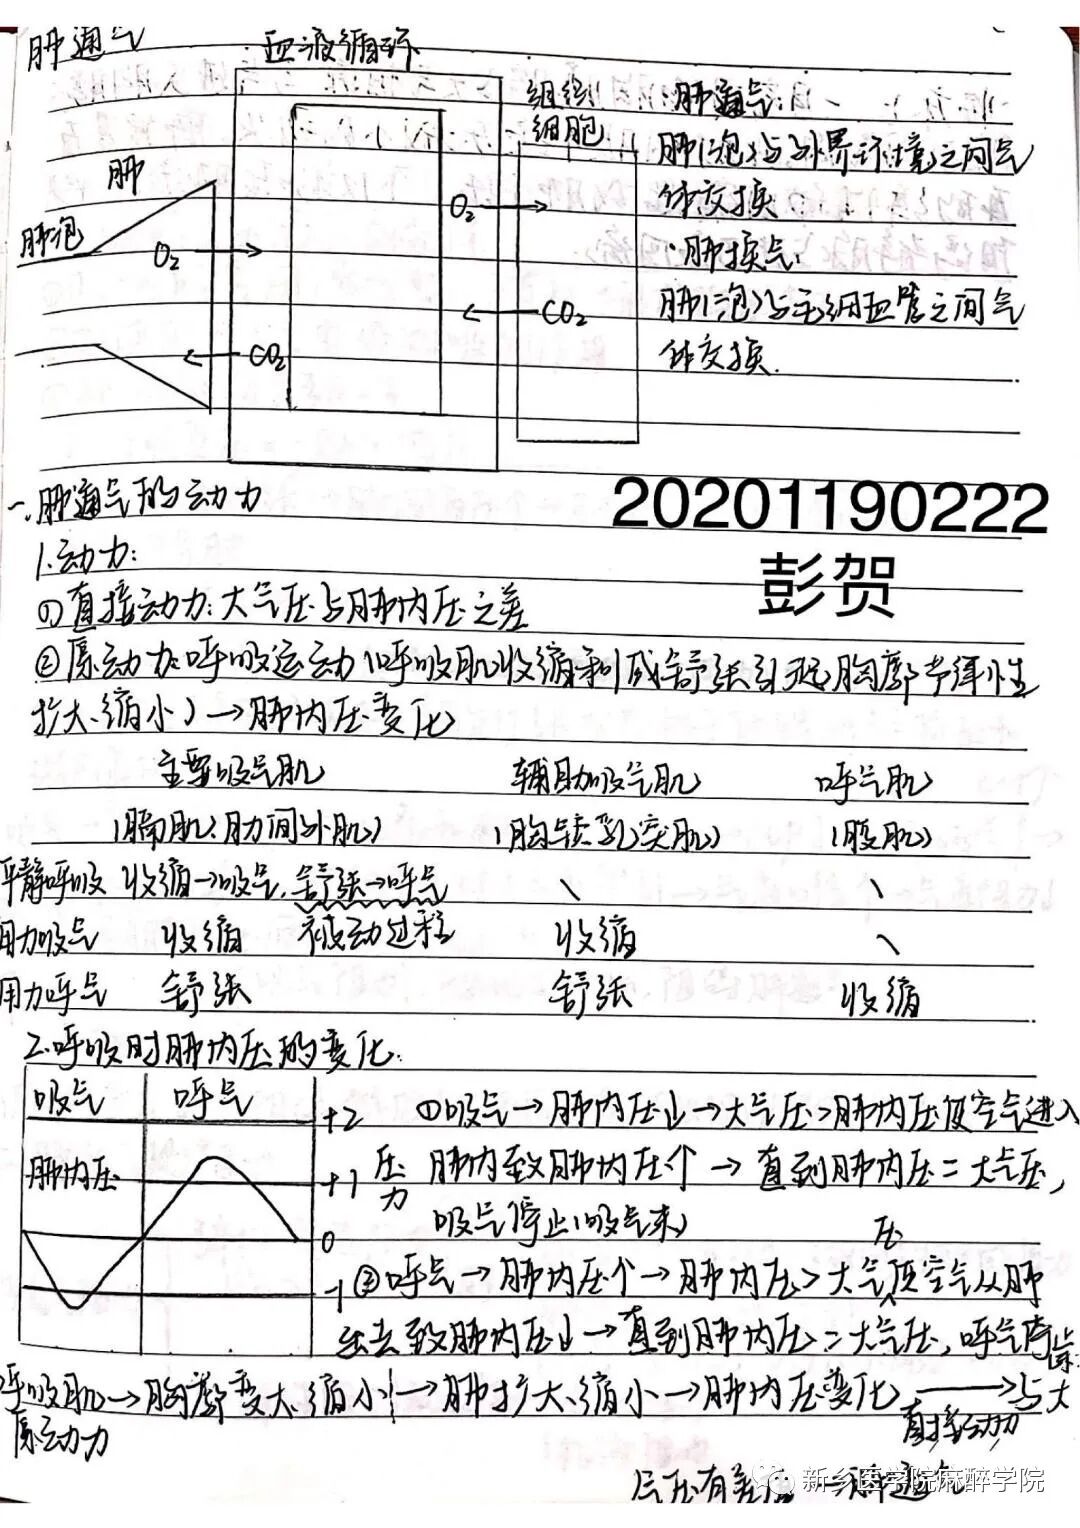 肺通气
血液循环
组织
细胞
肺
肺泡
O₂
CO₂
O₂
CO₂
·肺通气:
肺(泡)与外界环境之间气
体交换
·肺换气:
肺(泡)与毛细血管之间气
体交换.
20201190222
彭贺
一.肺通气的动力
1.动力:
①直接动力:大气压与肺内压之差
②原动力:呼吸运动(呼吸肌收缩和或舒张引起胸廓节律性
扩大、缩小)→肺内压变化
主要吸气肌 辅助吸气肌 呼气肌
(膈肌、肋间外肌) (胸锁乳突肌) (腹肌)
平静呼吸 收缩→吸气,舒张→呼气 \ \
用力吸气 收缩 被动过程 收缩 \
用力呼气 舒张 舒张 收缩
2.呼吸时肺内压的变化:
吸气 呼气
肺内压
+2
+1
0
-1
压
力
①吸气→肺内压↓→大气压>肺内压使空气进入
肺内致肺内压↑→直到肺内压=大气压,
吸气停止(吸气末)
②呼气→肺内压↑→肺内压>大气压使空气从肺
出去致肺内压↓→直到肺内压=大气压,呼气
呼吸肌→胸廓变大、缩小→肺扩大、缩小→肺内压变化→与大
原动力
直接动力
气压有差
新乡医学院麻醉学院